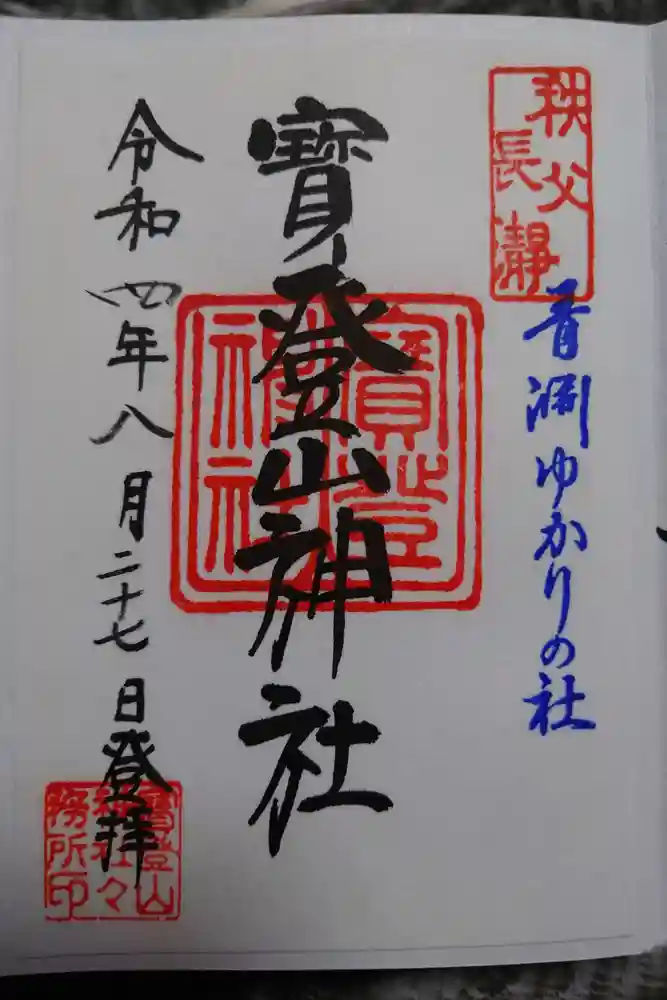 秩父
長瀞
青淵ゆかりの社
寶登山神社
寶登
神社
令和四年八月二十七日登拝
寶登山
神社々
務所印